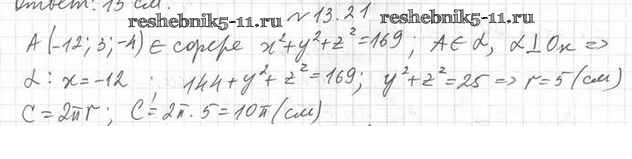 Ответ: 13 см.
reshebnik5-11.ru
№13.21
reshebnik5-11.ru
A(-12; 3; -4) ∈ сфере x²+y²+z²=169; A∈α, α⊥Ox ⇒
α: x=-12 ; 144+y²+z²=169; y²+z²=25 ⇒ r=5(см)
C=2πr; C=2π·5=10π(см)